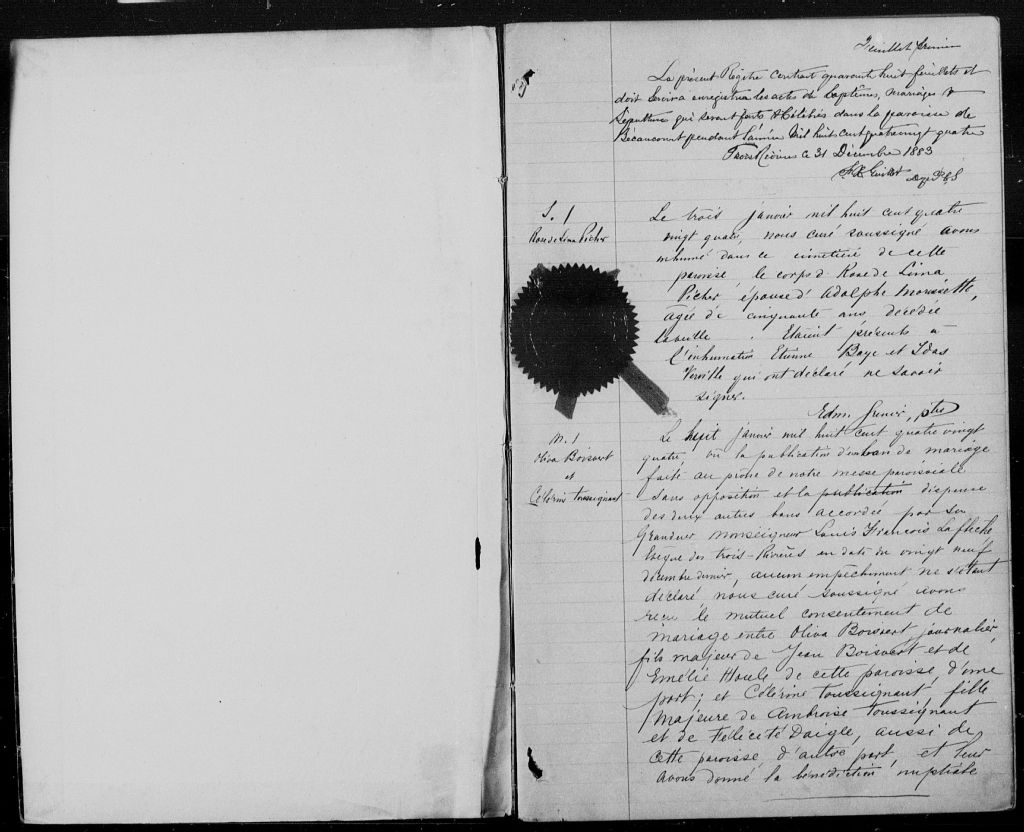 Feuillet premier
La présent Régitre contenant quarante huit feuillets et
doit servir a enregistrer les actes de baptêmes, mariages &
Sépultures qui seront faits & célébrés dans la paroisse de
Bécancourt pendant l'année Mil huit cent quatre vingt quatre
Trois Rivières ce 31 Décembre 1883
Guillet Dep P C S
S. 1
Rose de Lima Picher
Le trois janvier mil huit cent quatre
vingt quatre, nous curé soussigné avons
inhumé dans le cimetière de cette
paroisse, le corps d Rose de Lima
Picher épouse d' Adolphe Moussette,
agée de cinquante ans décédée
la veille. Etaient présents à
l'inhumation Etienne Baye et Idas
Verville qui ont déclaré ne savoir
signer.
Edm. Grenier, ptre
M. 1
Oliva Boisvert
et
Célérine Toussignant
Le sept janvier mil huit cent quatre vingt
quatre vu la publication d'un ban de mariage
faite au prône de notre messe paroissiale
sans opposition et la publication dispense
des deux autres bans accordée par Sa
Grandeur Monseigneur Louis François Laflèche
Evêque des trois-Rivières en date du vingt neuf
décembre dernier, aucun empêchement ne s'étant
déclaré nous curé soussigné avons
reçu le mutuel consentement de
mariage entre Oliva Boisvert, journalier
fils majeur de Jean Boisvert et de
Emélie Houle de cette paroisse, d'une
part; et Célérine Toussignant fille
Majeure de Ambroise Toussignant
et de Félicité Daigle, aussi de
cette paroisse, d'autre part, et leur
avons donné la bénédiction nuptiale